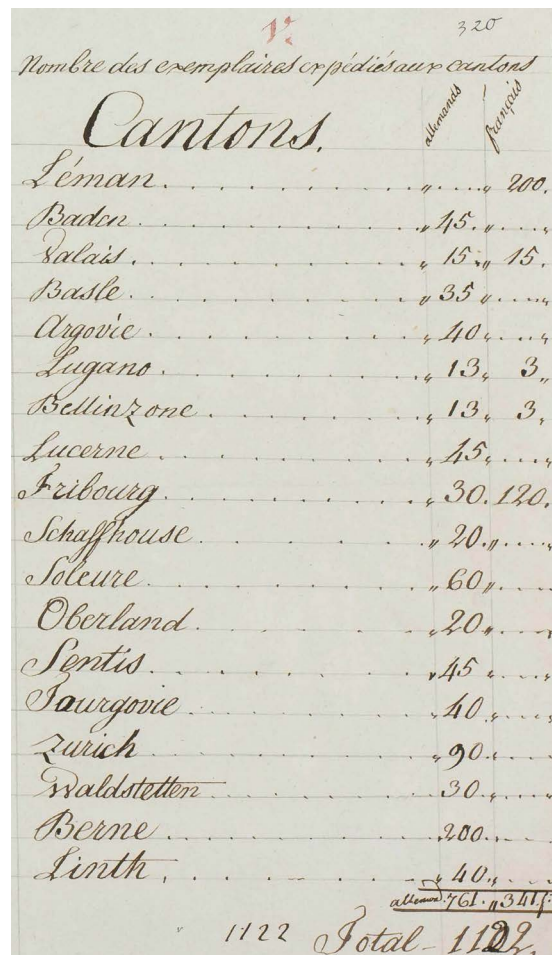 1.º 320
Nombre des exemplaires expédiés aux cantons
Cantons. allemands français
Léman. . . . . . . . . . . „ . . . . „ 200.
Baden . . . . . . . . . . . „ 45. „ . . . . „
Valais. . . . . . . . . . . „ 15. „ 15.
Basle . . . . . . . . . . . „ 35 „ . . . . „
Argovie . . . . . . . . . . „ 40 „ . . . . „
Lugano . . . . . . . . . . „ 13 „ 3 „
Bellinzone . . . . . . . . „ 13 „ 3 „
Lucerne . . . . . . . . . . „ 45 „ . . . . „
Fribourg . . . . . . . . . „ 30. 120.
Schaffhouse . . . . . . . „ 20 „ . . . . „
Soleure . . . . . . . . . . „ 60 „ . . . . „
Oberland . . . . . . . . . „ 20 „ . . . . „
Sentis . . . . . . . . . . . „ 45 „ . . . . „
Tourgovie . . . . . . . . . „ 40 „ . . . . „
Zurich . . . . . . . . . . . „ 90 „ . . . . „
Waldstetten . . . . . . . „ 30 „ . . . . „
Berne . . . . . . . . . . . „ 200. . . . . „
Linth . . . . . . . . . . . „ 40 „ . . . . „
allemd. 761. „ 341 f.
1122 Total - 1102.